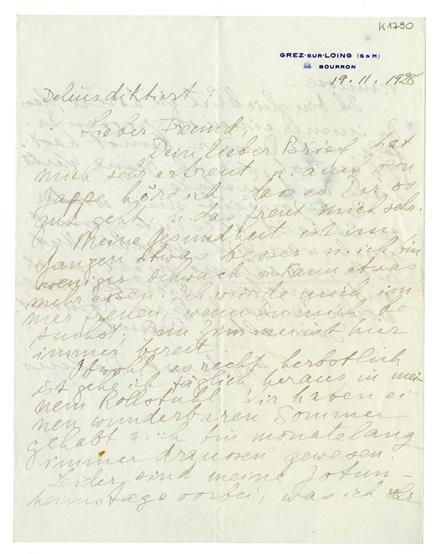 K1790
GREZ-SUR-LOING (S & M)
BOURRON
19.11.1928
Delius diktiert
Lieber Freund,
Dein lieber Brief hat
mich sehr erfreut, u. auch von
Jappe höre ich dass es Dir so
gut geht u. das freut mich sehr.
Meine Gesundheit ist im
Ganzen etwas besser u. ich bin
weniger schwach u. kann etwas
mehr essen. Ich würde mich im
mer freuen, wenn Du mich be
suchst, Dein Zimmer ist hier
immer bereit.
Obwohl es recht herbstlich
ist gehe ich täglich heraus in mei
nem Rollstuhl. Wir haben ei
nen wunderbaren Sommer
gehabt u. ich bin monatelang
immer draussen gewesen.
Leider sind meine Jotun-
heimstage vorbei, was ich